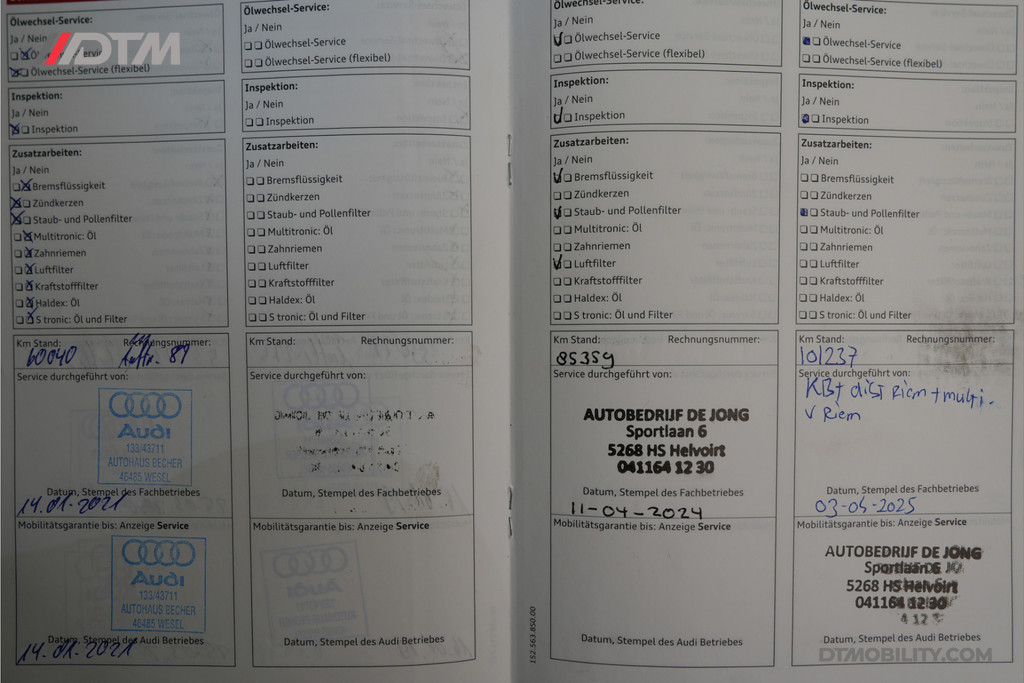 DTM
Ölwechsel-Service:
Ja / Nein
Ölwechsel-Service (flexibel)
Inspektion:
Ja / Nein
Inspektion
Zusatzarbeiten:
Ja / Nein
Bremsflüssigkeit
Zündkerzen
Staub- und Pollenfilter
Multitronic: Öl
Zahnriemen
Luftfilter
Kraftstofffilter
Haldex: Öl
S tronic: Öl und Filter
Km Stand:
Rechnungsnummer:
60040
Service durchgeführt von:
Audi
133/43711
AUTOHAUS BECHER
46485 WESEL
Datum, Stempel des Fachbetriebes
14.01.2021
Mobilitätsgarantie bis: Anzeige Service
Audi
133/43711
AUTOHAUS BECHER
46485 WESEL
Datum, Stempel des Audi Betriebes
14.01.2021
Ölwechsel-Service:
Ja / Nein
Ölwechsel-Service
Ölwechsel-Service (flexibel)
Inspektion:
Ja / Nein
Inspektion
Zusatzarbeiten:
Ja / Nein
Bremsflüssigkeit
Zündkerzen
Staub- und Pollenfilter
Multitronic: Öl
Zahnriemen
Luftfilter
Kraftstofffilter
Haldex: Öl
S tronic: Öl und Filter
Km Stand:
Rechnungsnummer:
Service durchgeführt von:
Datum, Stempel des Fachbetriebes
Mobilitätsgarantie bis: Anzeige Service
Datum, Stempel des Audi Betriebes
Ölwechsel-Service:
Ja / Nein
Ölwechsel-Service
Ölwechsel-Service (flexibel)
Inspektion:
Ja / Nein
Inspektion
Zusatzarbeiten:
Ja / Nein
Bremsflüssigkeit
Zündkerzen
Staub- und Pollenfilter
Multitronic: Öl
Zahnriemen
Luftfilter
Kraftstofffilter
Haldex: Öl
S tronic: Öl und Filter
Km Stand:
Rechnungsnummer:
85359
Service durchgeführt von:
AUTOBEDRIJF DE JONG
Sportlaan 6
5268 HS Helvoirt
041164 12 30
Datum, Stempel des Fachbetriebes
11-04-2024
Mobilitätsgarantie bis: Anzeige Service
Datum, Stempel des Audi Betriebes
152.563.850.00
Ölwechsel-Service:
Ja / Nein
Ölwechsel-Service
Ölwechsel-Service (flexibel)
Inspektion:
Ja / Nein
Inspektion
Zusatzarbeiten:
Ja / Nein
Bremsflüssigkeit
Zündkerzen
Staub- und Pollenfilter
Multitronic: Öl
Zahnriemen
Luftfilter
Kraftstofffilter
Haldex: Öl
S tronic: Öl und Filter
Km Stand:
Rechnungsnummer:
101237
Service durchgeführt von:
KBt dist Riem + multi.
v Riem
Datum, Stempel des Fachbetriebes
03-05-2025
Mobilitätsgarantie bis: Anzeige Service
AUTOBEDRIJF DE JONG
Sportlaan 6
5268 HS Helvoirt
041164 12 30
Datum, Stempel des Audi Betriebes
DTMOBILITY.COM